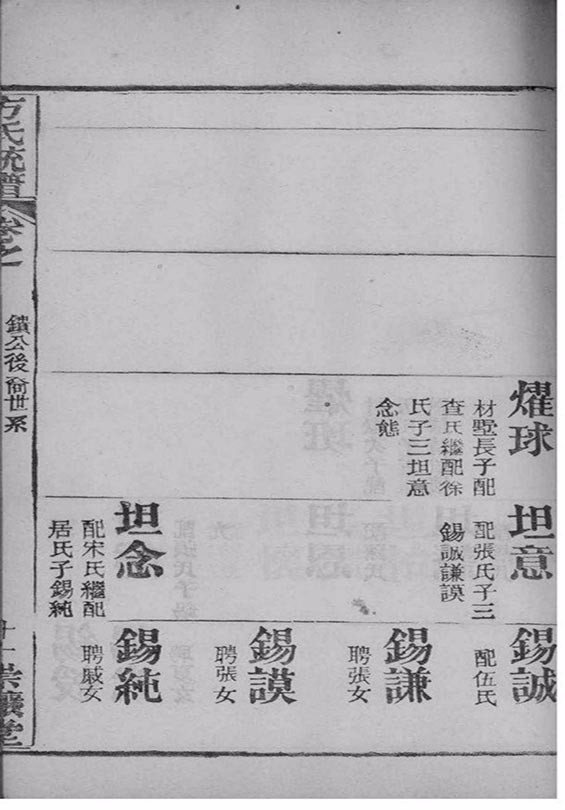 燿球
材墅長子配
查氏繼配徐
氏子三坦意
念態
坦意
配張氏子三
錫誠謙謨
坦念
配宋氏繼配
居氏子錫純
錫誠
配伍氏
錫謙
聘張女
錫謨
聘張女
錫純
聘戚女
方氏統譜
卷之
鐀公後裔世系
十一
堂